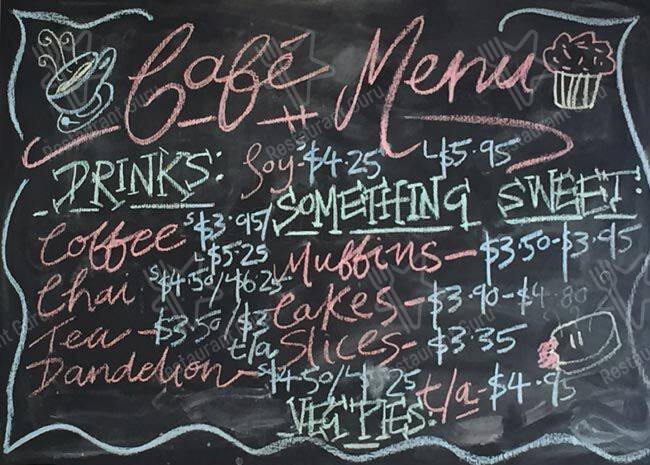 Café Menu
DRINKS:
Soy S$4.25 L$5.95
Coffee S$3.95/
L$5.25
Chai S$4.50/L$6.25
Tea - $3.50/$3
t/a
Dandelion - S$4.50/L$ 25
SOMETHING SWEET:
Muffins - $3.50-$3.95
Cakes - $3.90-$4.80
Slices - $3.35
VEG PIES: t/a - $4.95
Restaurant Guru